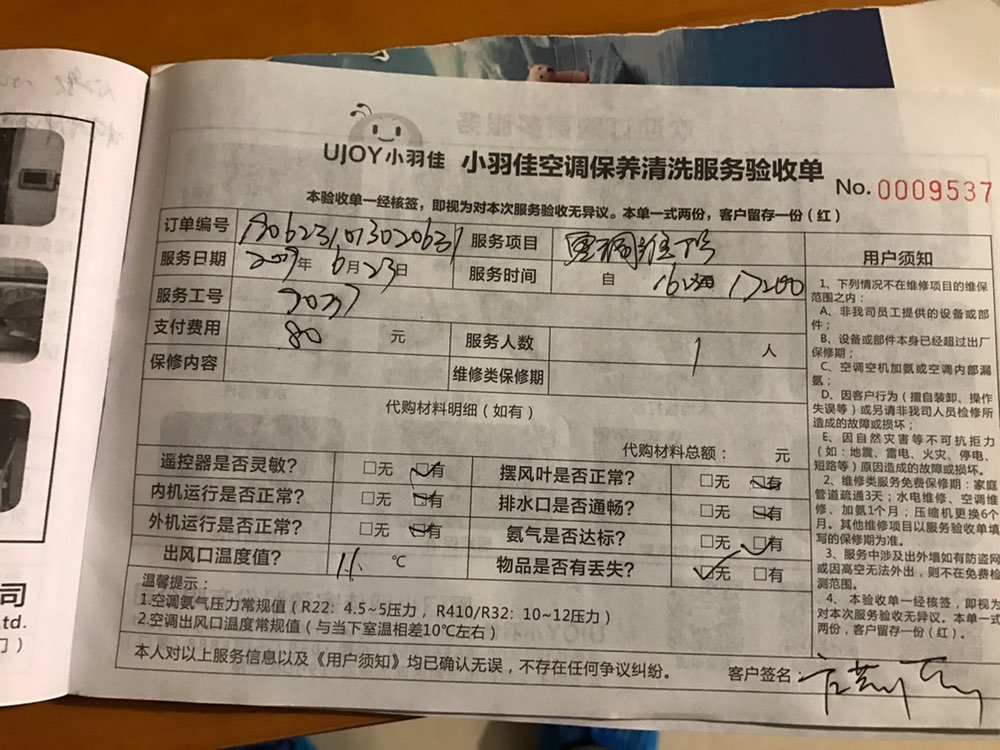 UJOY小羽佳 小羽佳空调保养清洗服务验收单
No. 0009537
本验收单一经核签，即视为对本次服务验收无异议。本单一式两份，客户留存一份（红）
订单编号 服务项目
服务日期 年 6月23日 服务时间 自
服务工号
支付费用 80 元 服务人数 1 人
保修内容 维修类保修期
代购材料明细（如有）
代购材料总额： 元
遥控器是否灵敏？ □无 □有 摆风叶是否正常？ □无 □有
内机运行是否正常？ □无 □有 排水口是否通畅？ □无 □有
外机运行是否正常？ □无 □有 氨气是否达标？ □无 □有
出风口温度值？ 11 ℃ 物品是否有丢失？ □无 □有
温馨提示：
1.空调氨气压力常规值（R22：4.5~5压力，R410/R32：10~12压力）
2.空调出风口温度常规值（与当下室温相差10℃左右）
本人对以上服务信息以及《用户须知》均已确认无误，不存在任何争议纠纷。
客户签名：
用户须知
1、下列情况不在维修项目的维保
范围之内：
A、非我司员工提供的设备或部
件；
B、设备或部件本身已经超过出厂
保修期；
C、空调空机加氨或空调内部漏
氨；
D、因客户行为（擅自装卸、操作
失误等）或另请非我司人员检修所
造成的故障或损坏；
E、因自然灾害等不可抗拒力
（如：地震、雷电、火灾、停电、
短路等）原因造成的故障或损坏。
2、维修类服务免费保修期：家庭
管道疏通3天；水电维修、空调维
修、加氨1个月；压缩机更换6个
月。其他维修项目以服务验收单填
写的保修期为准。
3、服务中涉及出外墙如有防盗网
或因高空无法外出，则不在免费检
测范围。
4、本验收单一经核签，即视为
对本次服务验收无异议。本单一式
两份，客户留存一份（红）。
司
Ltd.
门）